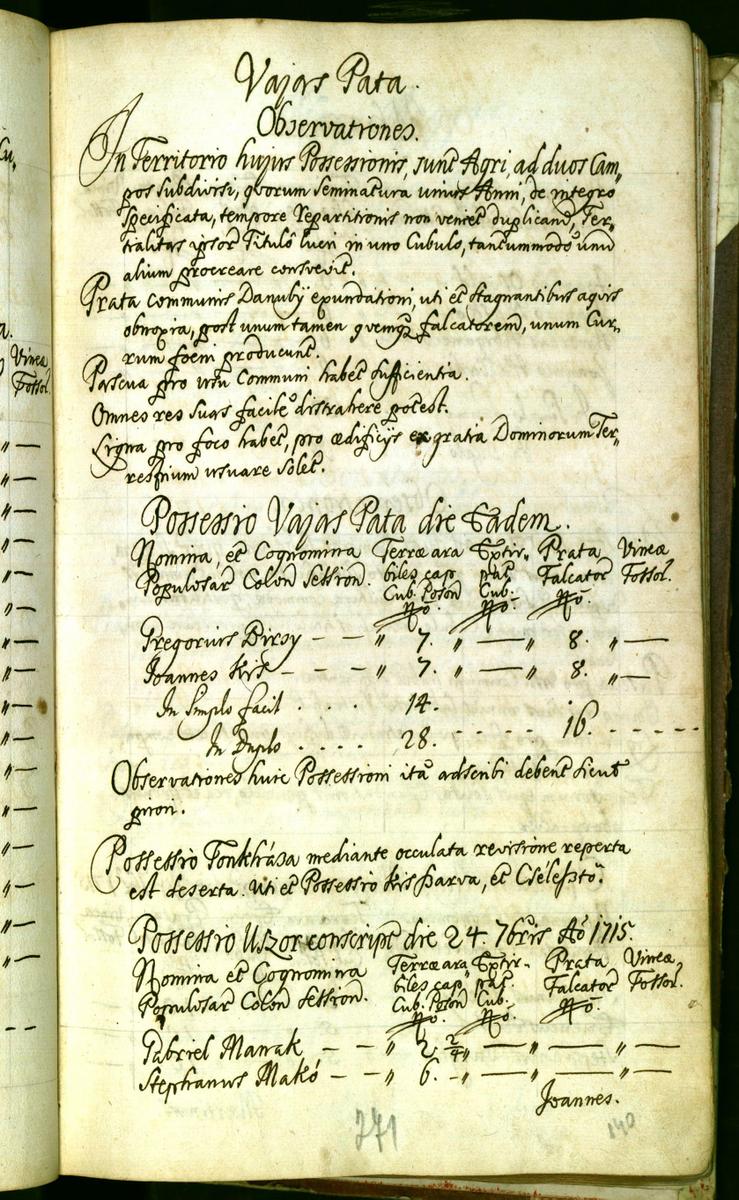 Vajas Pata.
Observationes.
In Territorio hujus Possessionis, sunt Agri, ad duos Cam„
pos subdivisi, qvorum seminatura unius Anni, de integro
specificata, tempore Repartitionis non veniet duplicand, Ter„
tialitas ipsor Titulô lucri in uno Cubulo, tantummodo unũ
alium procreare consvevit.
Prata communis Danubÿ expundationi, uti et stagnantibus aqvis
obnoxia, post unum tamen qvemq falcatorem, unum Cur„
rum foeni producunt.
Pascua pro usu Communi habet sufficientia.
Omnes res suas facile distrahere potest.
Ligna pro foco habet, pro ædificijs ex gratia Dominorum Ter„
restrium usuare solet.
Possessio Vajas Pata die Eadem.
Nomina, et Cognomina Terræ ara Extir„ Prata Vineæ
Populosar Colon Session. biles cap pat Falcator Fossor.
Cub. Poson Cub.
No. No. No.
Gregorius Dirsy — — „ 7. „ — „ 8. „ —
Joannes Kis — — „ 7. „ — „ 8. „ —
In Simplo facit . . . . 14.
16.
In Duplo . . . . 28.
Observationes huic Possessioni ita adscribi debent sicut
priori.
Possessio Tonkháza mediante occulata revisione reperta
est deserta. Uti et Possessio Kis Parva, et Csélesztö.
Possessio Uszor conscript die 24. 7bris Aõ 1715.
Nomina et Cognomina Terræ ara„ Extir„ Prata Vineæ
Populosar Colon Session. biles cap pat Falcator Fossor.
Cub. Poson Cub.
No. No. No.
Gabriel Manak — — „ 2 2/4 „ — „ — „ —
Stephanus Makó — — „ 6. „ — „ — „ —
Joannes.
271
140